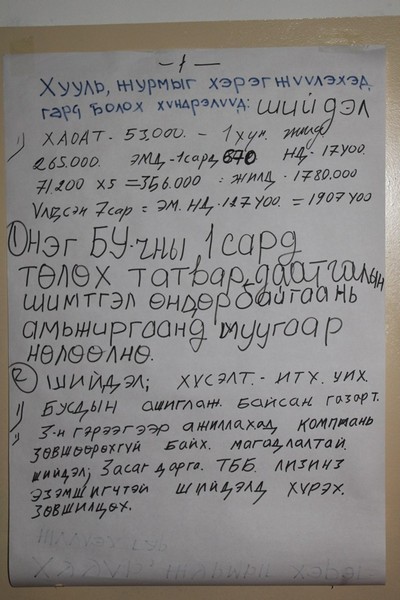 — 1 —
Хууль, журмыг хэрэгжүүлэхэд
гарч болох хүндрэлүүд: ШИЙДЭЛ
1) ХАОАТ - 53,000. - 1 хүн. жилд
265.000. ЭМД-1сард 670 НД-17400.
71.200 x5 = 356.000 : жилд - 1780.000
Үлдсэн 7сар = ЭМ.НД-127400. = 1907400
1) НЭГ БУ-чны 1сард
төлөх татвар, даатгалын
шимтгэл өндөр байгаань
амьжиргаанд муугаар
нөлөөлнө.
2) ШИЙДЭЛ; ХҮСЭЛТ. - ИТХ. УИХ.
1) Бусдын ашиглаж. байсан газарт.
2) 3-н гэрээгээр ажиллахад компань
зөвшөөрөхгүй байх. магадлалтай.
шийдэл; Засаг дарга. ТББ. лизинз
эзэмшигчтэй шийдэлд хүрэх.
зөвшилцөх.